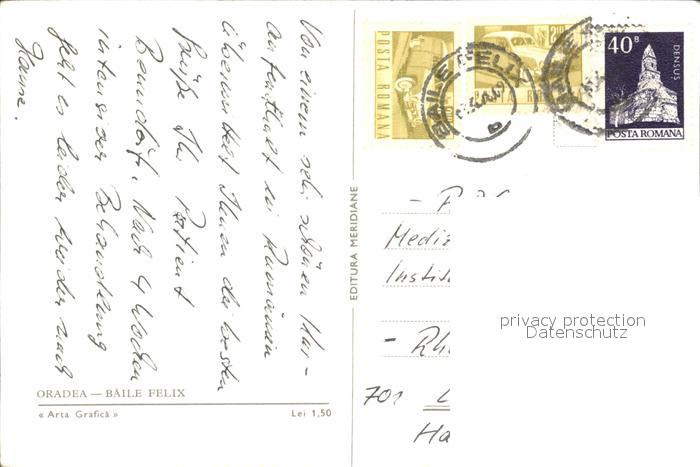 Von einem sehr schönen Kur-
aufenthalt in Rumänien
übermittelt Ihnen die besten
Grüße Ihr Patient
Benndorf. Nach 4 Wochen
intensiver Behandlung
geht es leider wieder nach
Hause.
ORADEA — BĂILE FELIX
« Arta Grafică »
Lei 1,50
EDITURA MERIDIANE
POSTA ROMANA
BAILE FELIX
40B
DENSUS
POSTA ROMANA
Mediz
Institu
- Rh
701
Ha
privacy protection
Datenschutz